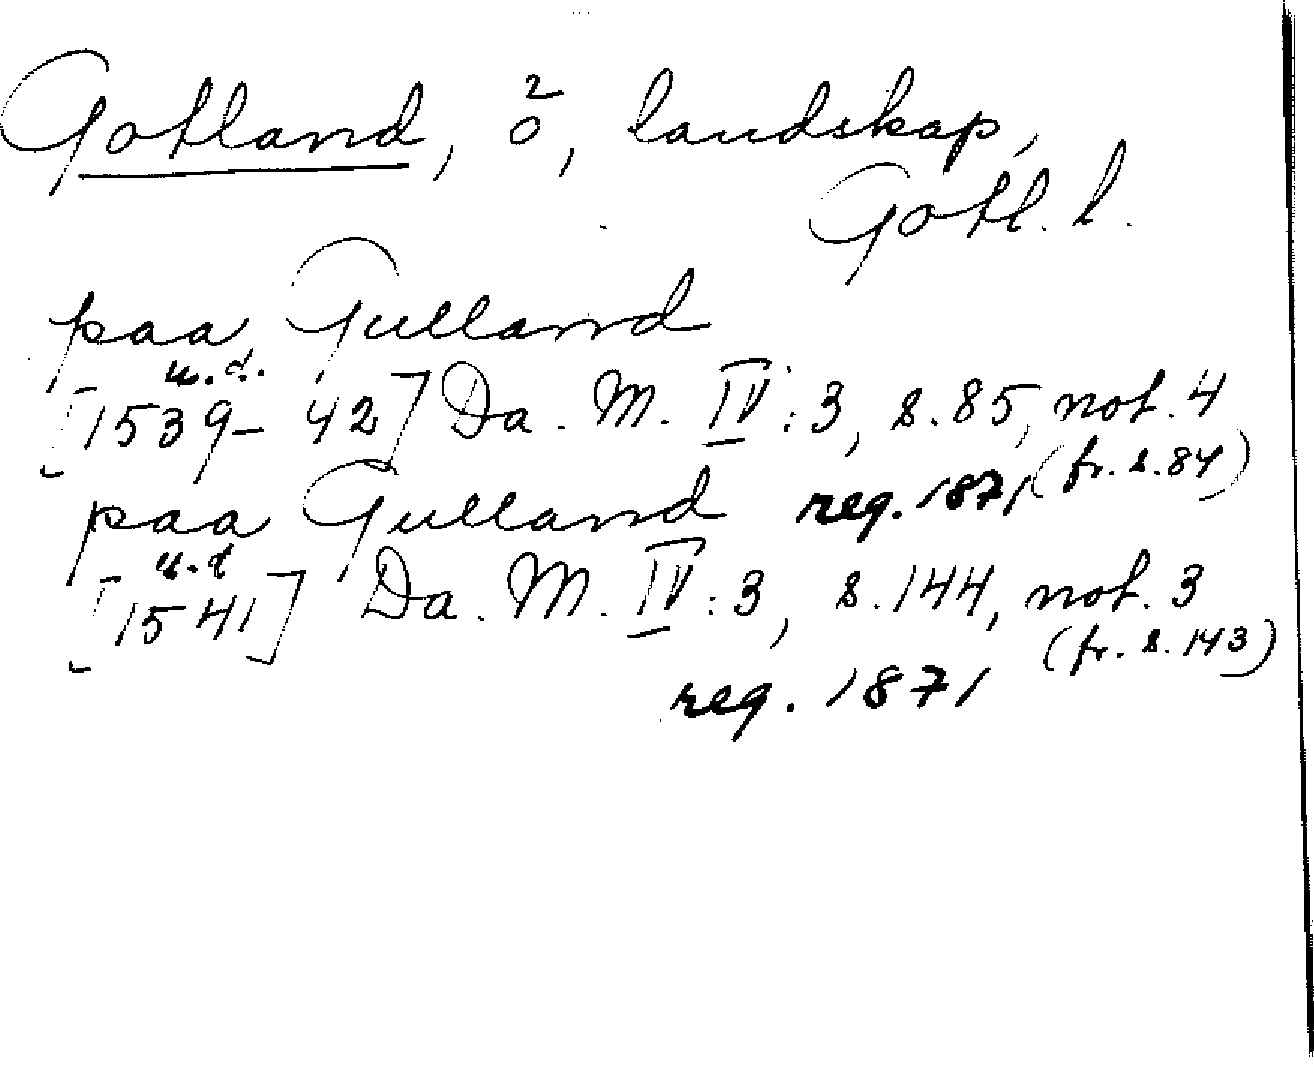 Gotland, ö, landskap,
Gotl. l.
paa Gulland
u.d.
[1539-42] Da. M. IV:3, s.85, not.4
(fr. s.84)
paa Gulland reg. 1871
u.d
[1541] Da. M. IV:3, s.144, not.3
(fr. s.143)
reg. 1871